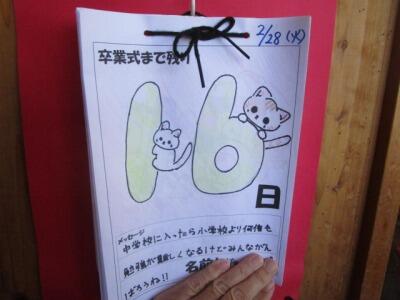 2/28 (火)
卒業式まで残り
16
日
メッセージ
中学校に入ったら小学校より何倍も
勉強が難しくなるけどみんながん
ばろうね!!
名前